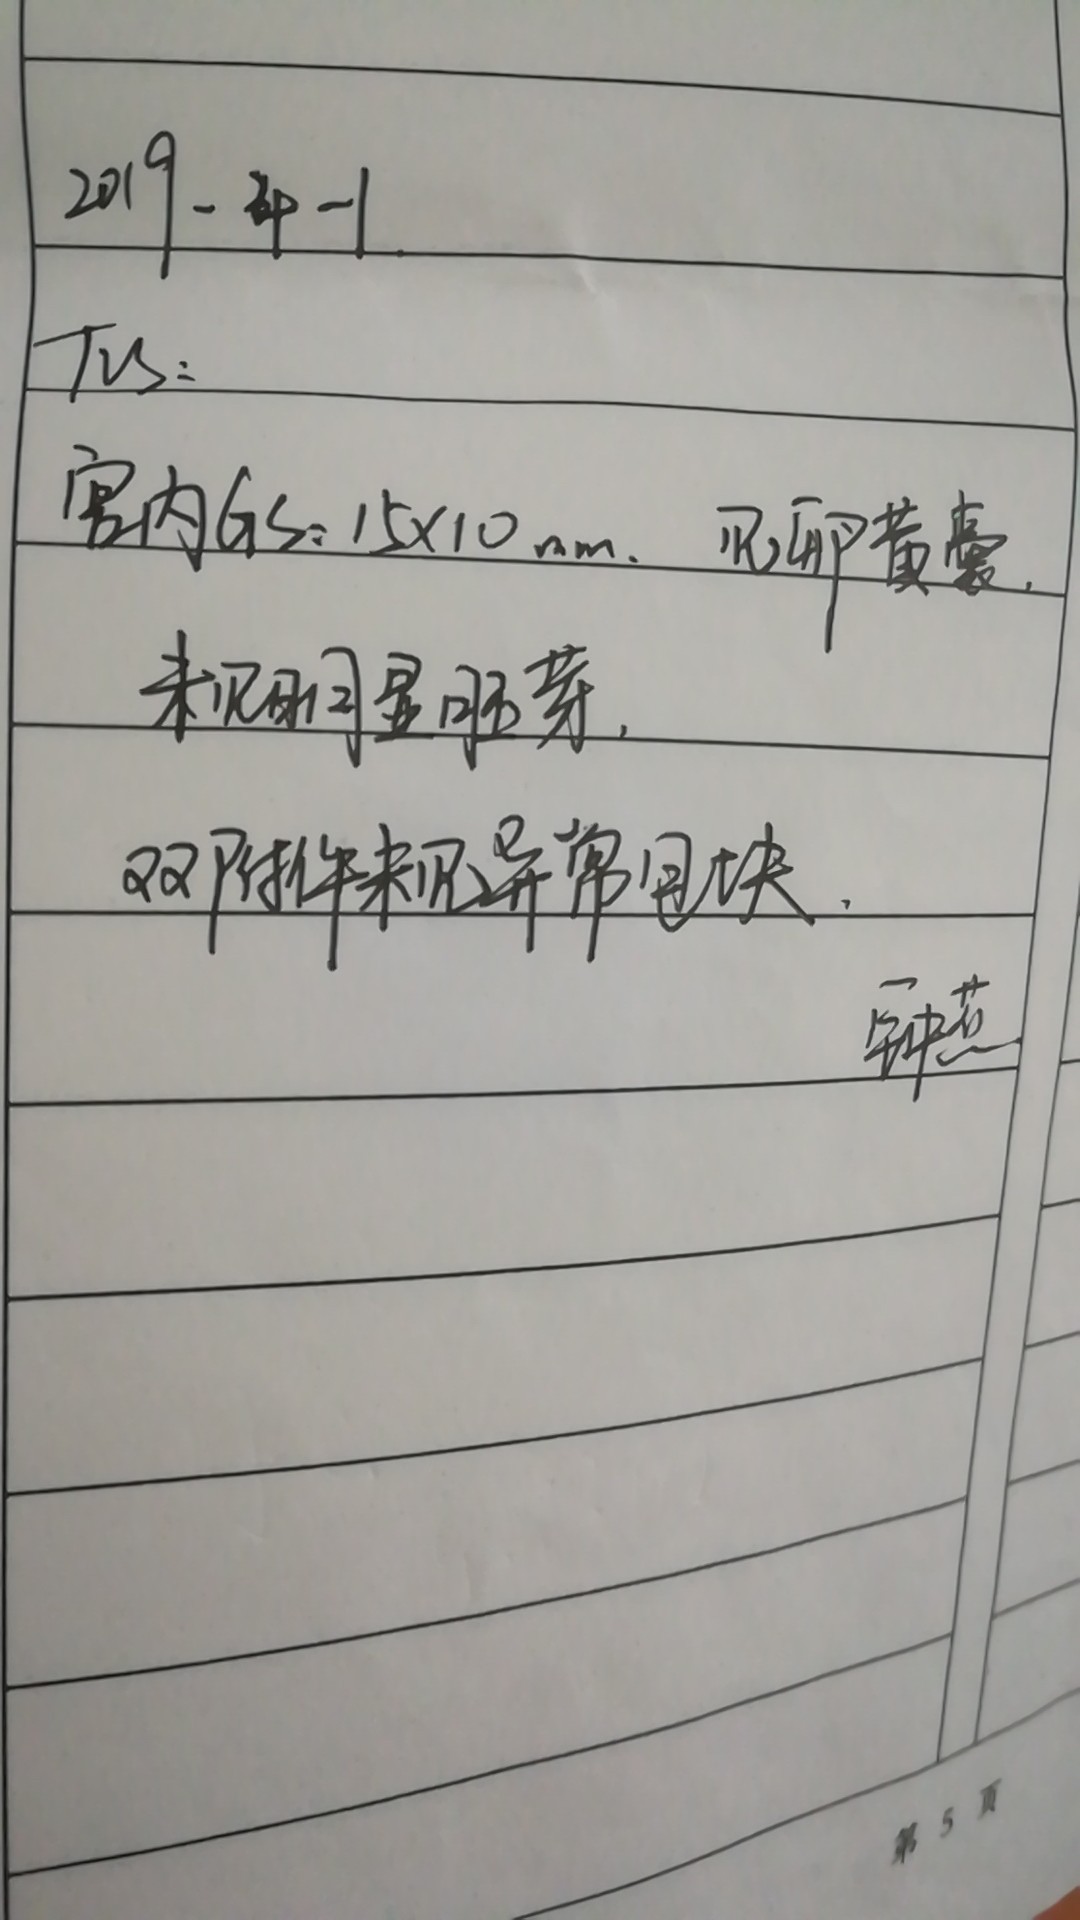 2019-4-1
TVS:
宫内GS:15×10mm. 见卵黄囊.
未见明显胚芽.
双附件未见异常包块.
第 5 页